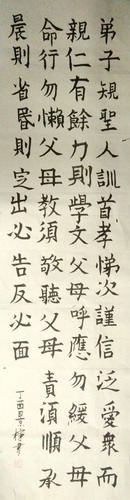 弟子規聖人訓首孝悌次謹信泛愛衆而
親仁有餘力則學文父母呼應勿緩父母
命行勿懶父母教須敬聽父母責須順承
晨則省昬則定出必告反必面
丁酉景書